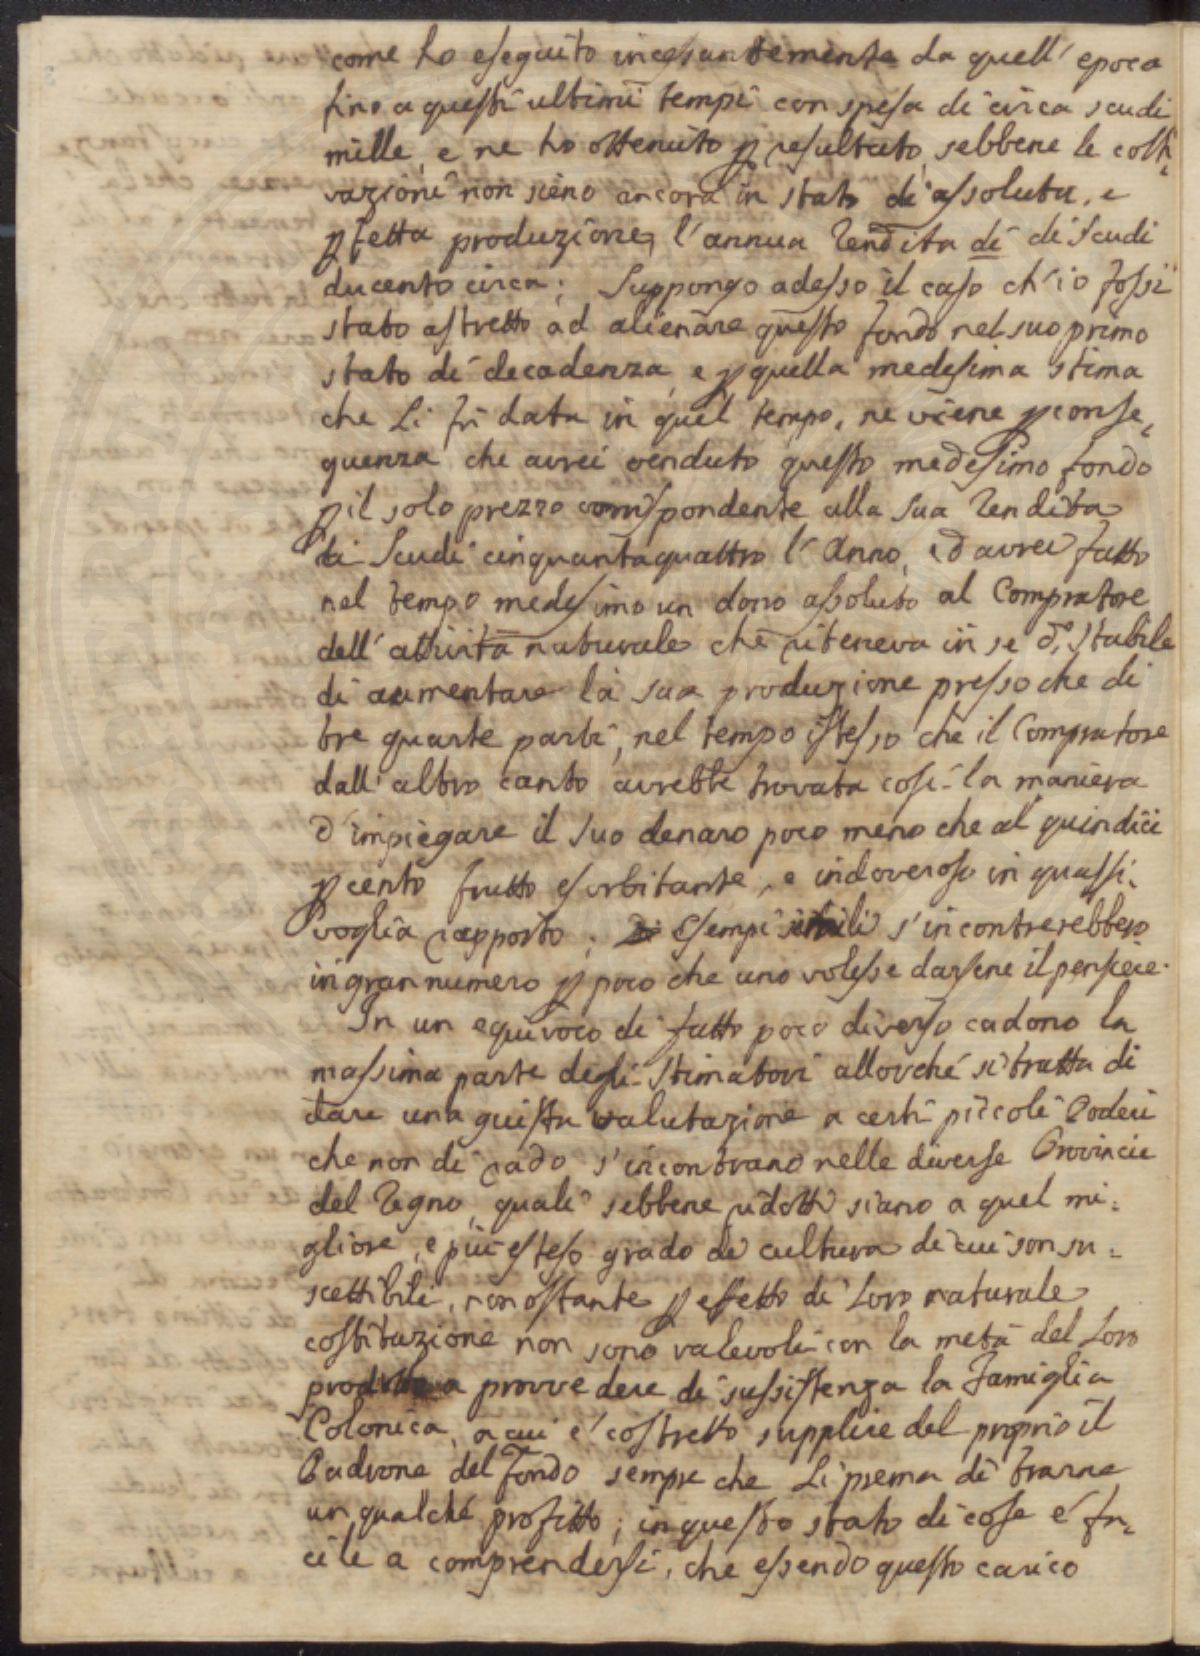 come ho eseguito incesantemente da quell' epoca
fino a questi ultimi tempi con spesa di circa scudi
mille, e ne ho ottenuto p resultato, sebbene le colti„
vazioni non sieno ancora in stato di assoluta, e
pfetta produzione, l'annua rendita di di Scudi
ducento circa; Suppongo adesso il caso ch'io fossi
stato astretto ad alienare questo fondo nel suo primo
stato di decadenza, e p quella medesima stima
che Li fù data in quel tempo, ne viene p conse„
guenza che avrei venduto questo medesimo fondo
p il solo prezzo corrispondente alla sua rendita
di Scudi cinquantaquattro l'Anno, ed avrei fatto
nel tempo medesimo un dono assoluto al Compratore
dell' attività naturale che riteneva in se d.o Stabile
di aumentare la sua produzione presso che di
tre quarte parti, nel tempo istesso che il Compratore
dall' altro canto avrebbe trovata così la maniera
d'impiegare il suo denaro poco meno che al quindici
p cento frutto esorbitante, e indoveroso in qualsi„
voglia rapporto; Esempi simili s'incontrerebbero
in gran numero p poco che uno volesse darsene il pensiere.
In un equivoco di fatto poco diverso cadono la
massima parte degli Stimatori allorché si tratta di
dare una giusta valutazione a certi piccoli Poderi
che non di rado s'incontrano nelle diverse Provincie
del regno, quali sebbene ridotti siano a quel mi„
gliore, e più esteso grado di cultura di cui son su„
scettibili, nonostante p effetto di Loro naturale
costituzione non sono valevoli con la metà del Loro
prodotto a provvedere di sussistenza la Famiglia
Colonica, a cui è costretto supplire del proprio il
Padrone del Fondo sempre che Li prema di trarne
un qualche profitto; in questo stato di cose è fa„
cile a comprendersi, che essendo questo carico